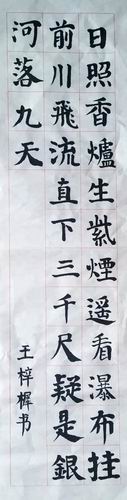 日照香爐生紫煙遥看瀑布挂
前川飛流直下三千尺疑是銀
河落九天
王梓樨书